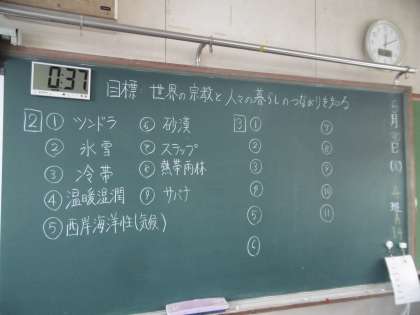 0:37
目標 世界の宗教と人々の暮らしのつながりを知る
2 ① ツンドラ
② 氷雪
③ 冷帯
④ 温暖湿潤
⑤ 西岸海洋性(気候)
⑥ 砂漠
⑦ ステップ
⑧ 熱帯雨林
⑨ サバナ
3 ①
②
③
④
⑤
⑥
⑦
⑧
⑨
⑩
⑪
月
日